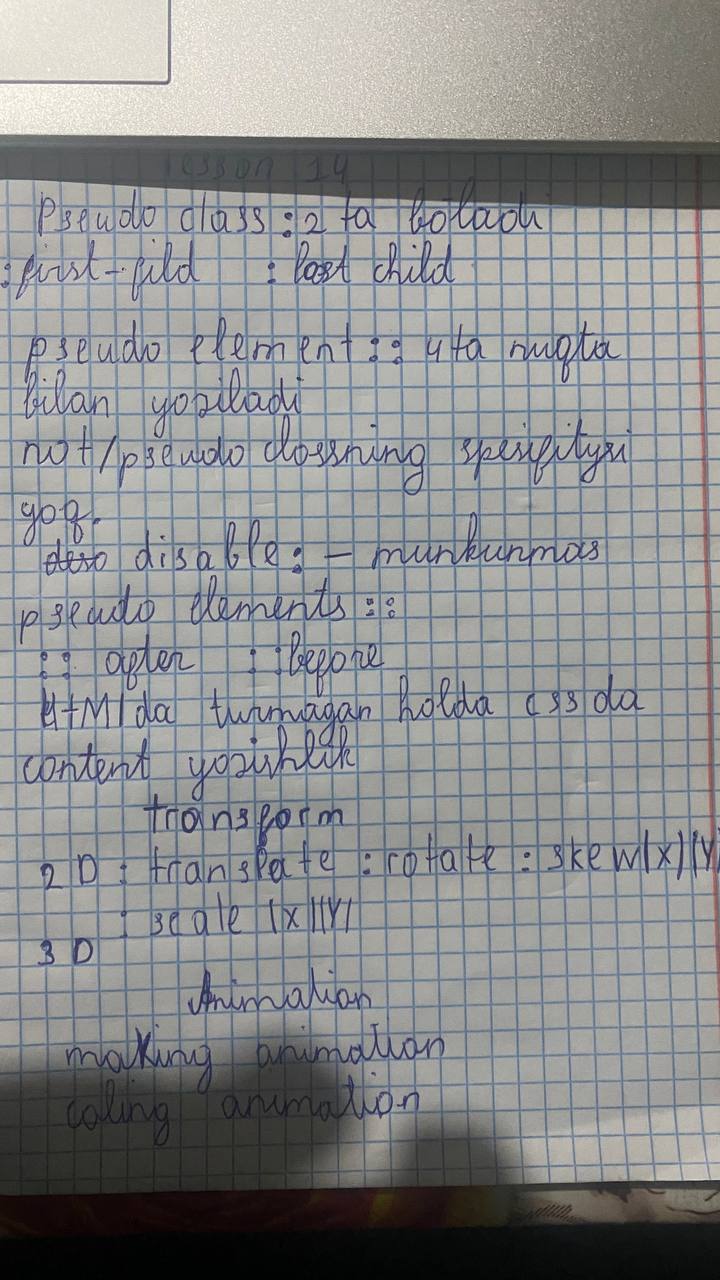 lesson 14
Pseudo class : 2 ta boladi
: first-fild : last child
pseudo element :: 4 ta nuqta
bilan yoziladi
not/pseudo classning spesifitysi
yoq.
disable : - munkunmas
pseudo elements ::
:: after :: before
HtMl da turmagan holda css da
content yozishlik
transform
2 D : translate : rotate : skew(x)(Y)
: scale (x)(Y)
3 D
Animation
making animation
caling animation